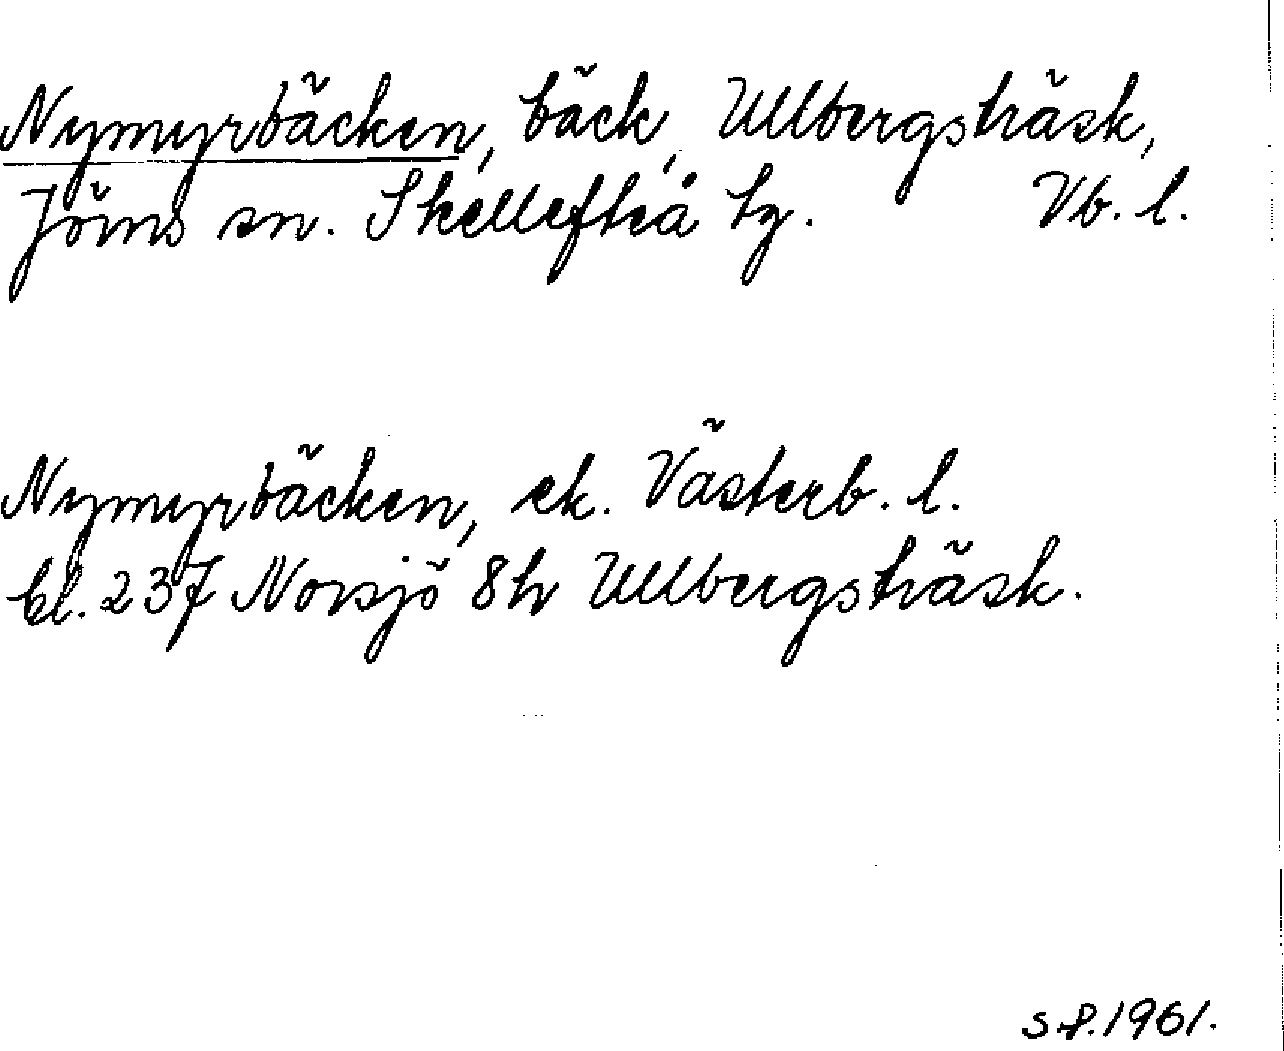 Nymyrbäcken, bäck, Ullbergsträsk,
Jörns sn. Skellefteå tg. Vb. l.
Nymyrbäcken, ek. Västerb. l.
bl. 237 Norsjö 8h Ullbergsträsk.
S.P. 1961.